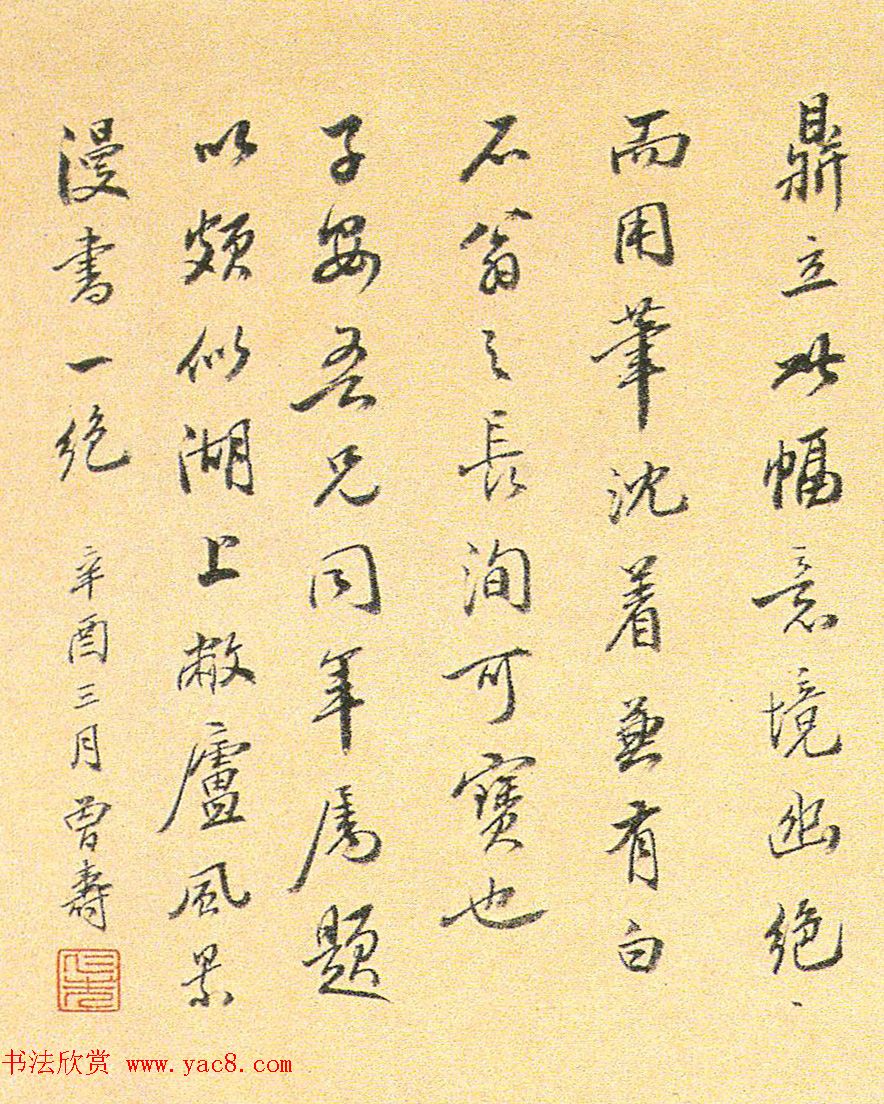 鼎立此幅意境幽絕
而用筆沈着兼有白
石翁之長洵可寶也
子安吾兄同年屬題
以頗似湖上敝廬風景
漫書一絕 辛酉三月曾壽
书法欣赏 www.yac8.com